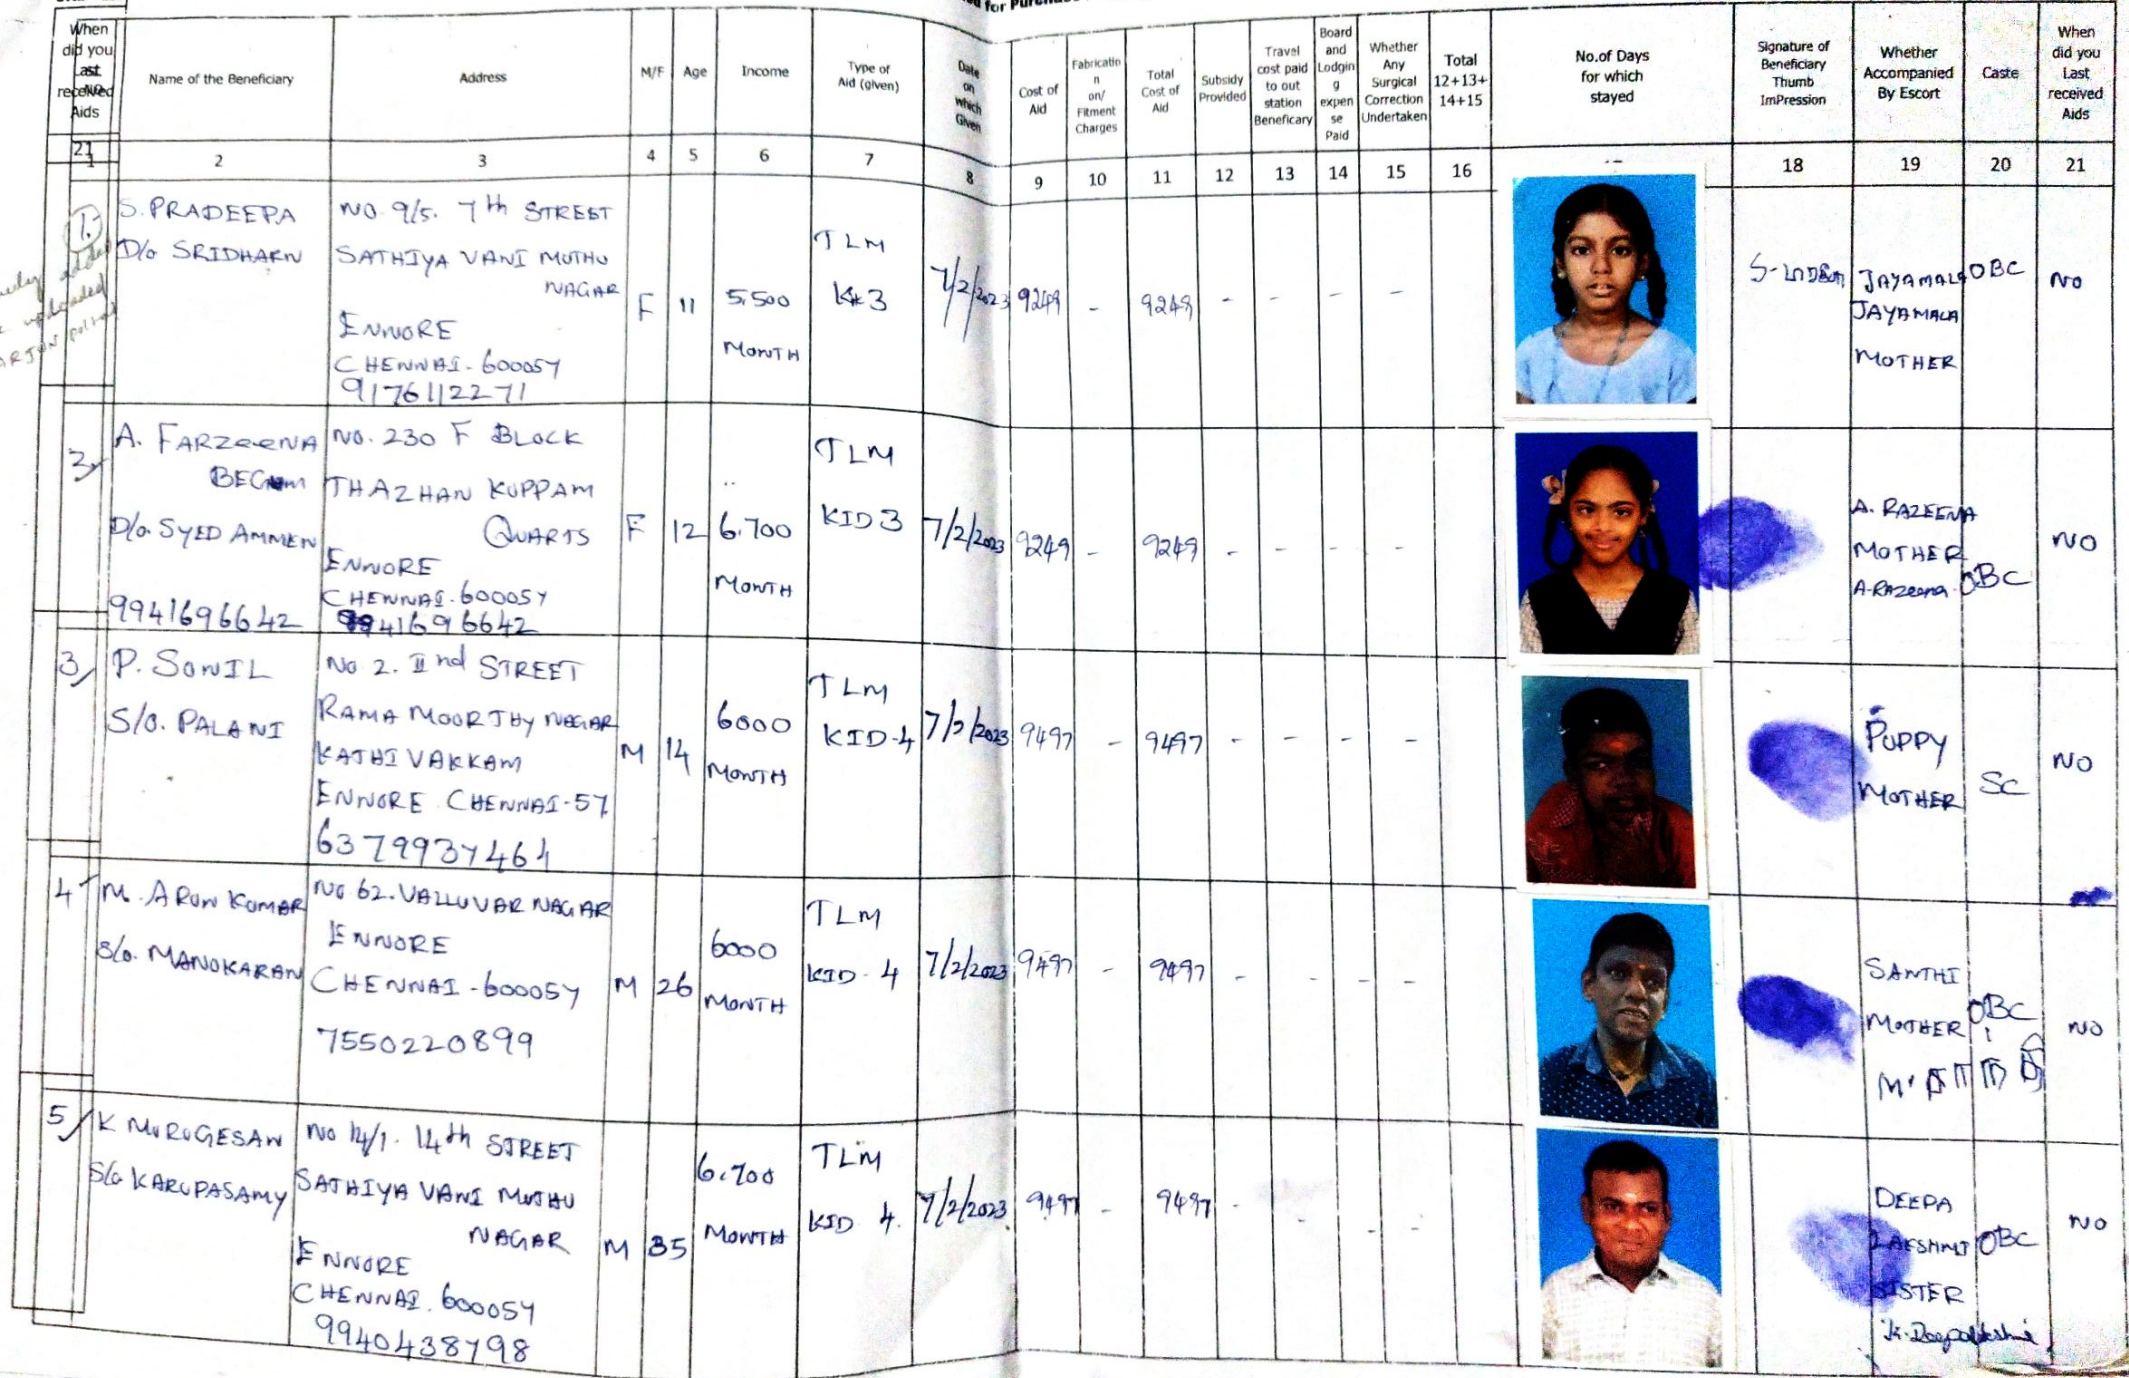 for Purchase
When
did you
Last
received
Aids
Name of the Beneficiary
Address
M/F
Age
Income
Type of
Aid (given)
Date
on
which
Given
Cost of
Aid
Fabricatio
n
on/
Fitment
Charges
Total
Cost of
Aid
Subsidy
Provided
Travel
cost paid
to out
station
Beneficary
Board
and
Lodgin
g
expen
se
Paid
Whether
Any
Surgical
Correction
Undertaken
Total
12+13+
14+15
No.of Days
for which
stayed
Signature of
Beneficiary
Thumb
ImPression
Whether
Accompanied
By Escort
Caste
When
did you
Last
received
Aids
21
1 2 3 4 5 6 7 8 9 10 11 12 13 14 15 16 18 19 20 21
1.
S. PRADEEPA
D/o SRIDHARN
NO 9/5. 7th STREET
SATHIYA VANI MUTHU
NAGAR
ENNORE
CHENNAI-600057
9176112271
F
11
5.500
MONTH
TLM
7/2/2023
9249
-
9249
- - - -
JAYAMALA
JAYAMALA
MOTHER
OBC
NO
3
A. FARZEENA
BEGUM
D/o. SYED AMMEN
9941696642
NO. 230 F BLOCK
THAZHAN KUPPAM
QUARTS
ENNORE
CHENNAI-600057
9941696642
F
12
6.700
MONTH
TLM
KID 3
7/2/2023
9249
-
9249
- - - -
A. RAZEENA
MOTHER
A.Razeena
OBC
NO
3
P. SUNIL
S/O. PALANI
NO 2. IInd STREET
RAMA MOORTHY NAGAR
KATHIVAKKAM
ENNORE CHENNAI-57
6379937464
M
14
6000
MONTH
TLM
KID-4
7/2/2023
9497
-
9497
- - - -
PUPPY
MOTHER
SC
NO
4
M. ARUN KUMAR
S/o. MANOKARAN
NO 62. VALLUVAR NAGAR
ENNORE
CHENNAI-600057
7550220899
M
26
6000
MONTH
TLM
KID-4
7/2/2023
9497
-
9497
- - - -
SANTHI
MOTHER
OBC
NO
5
K MURUGESAN
S/o KARUPASAMY
NO 14/1. 14th STREET
SATHIYA VANI MUTHU
NAGAR
ENNORE
CHENNAI. 600057
9940438798
M
35
6.700
MONTH
TLM
KID 4.
7/2/2023
9497
-
9497
- - - -
DEEPA
LAKSHMI
SISTER
OBC
NO